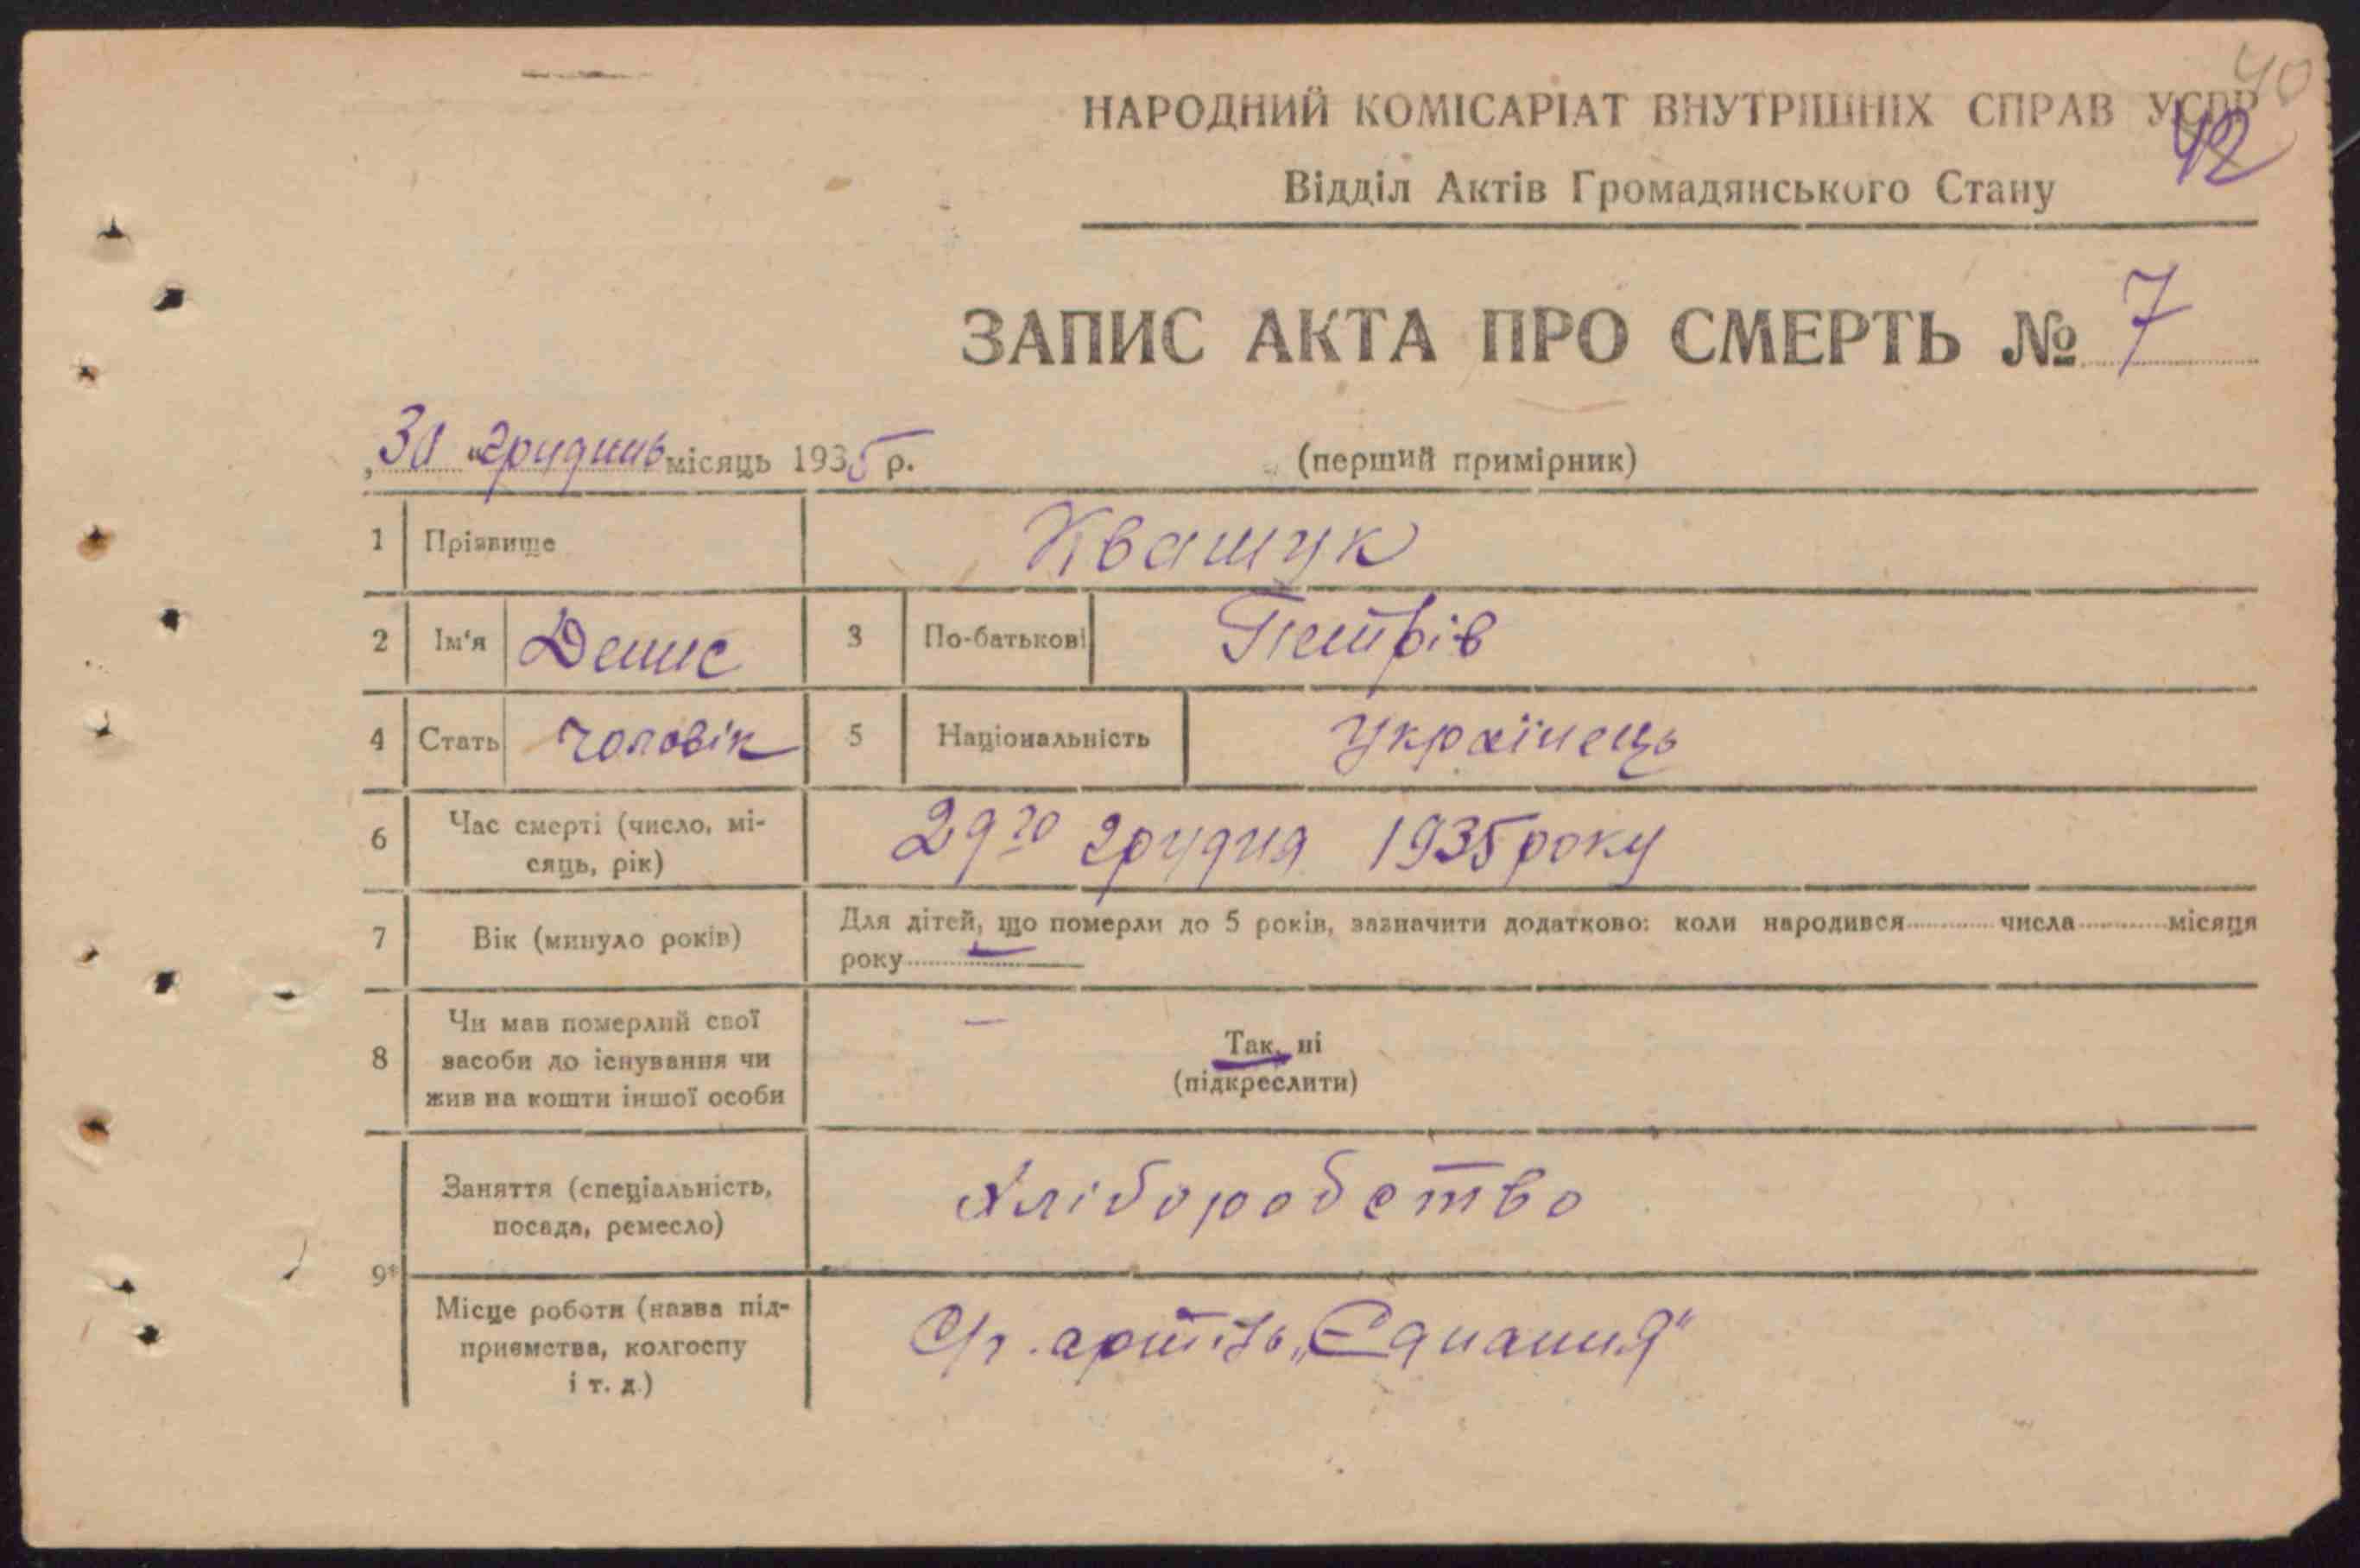 40
НАРОДНИЙ КОМІСАРІАТ ВНУТРІШНІХ СПРАВ УСРР
42
Відділ Актів Громадянського Стану
ЗАПИС АКТА ПРО СМЕРТЬ № 7
„30 “ грудень місяць 1935 р. (перший примірник)
1 Прізвище Квашук
2 Ім'я Денис 3 По-батькові Петрів
4 Стать чоловік 5 Національність Українець
6 Час смерті (число, мі-
сяць, рік) 29го грудня 1935 року
7 Вік (минуло років) Для дітей, що померли до 5 років, зазначити додатково: коли народився числа місяця
року —
8 Чи мав померлий свої
засоби до існування чи
жив на кошти іншої особи — Так, ні
(підкреслити)
9* Заняття (спеціальність,
посада, ремесло) Хліборобство
Місце роботи (назва під-
приємства, колгоспу
і т. д.) С/г. артіль „Єднання“